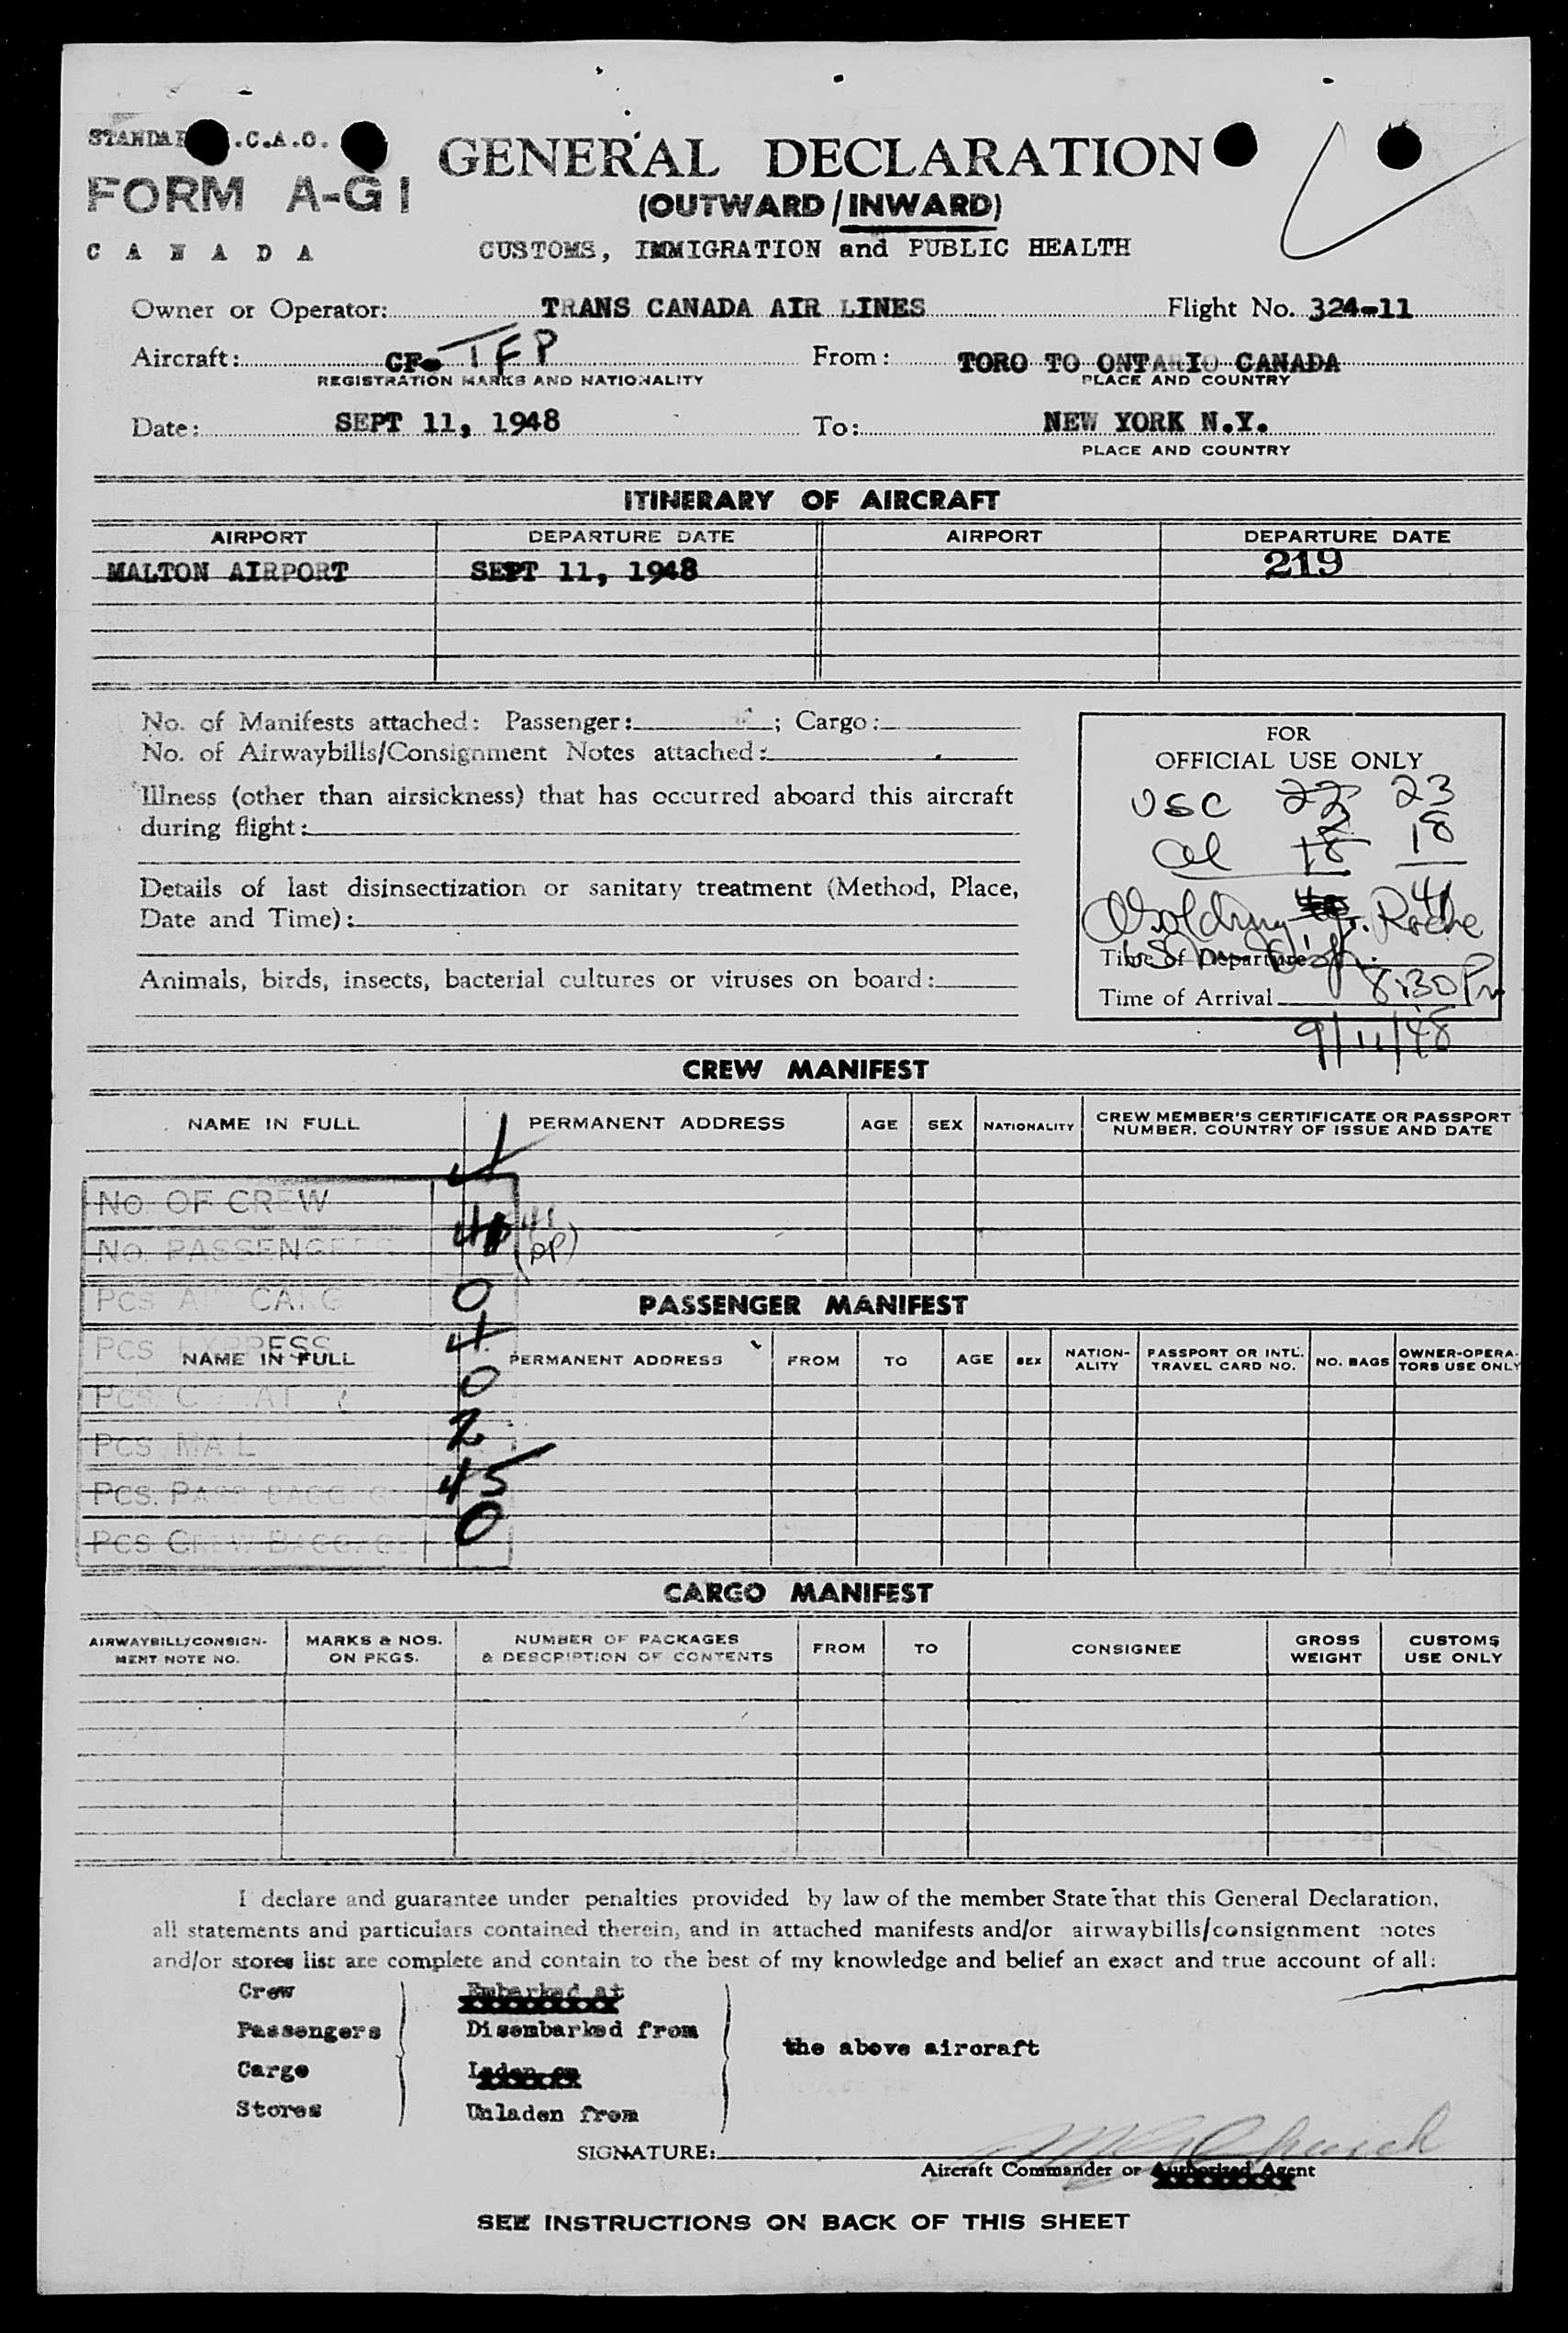 .C.A.O.
FORM A-G1
C A N A D A
GENERAL DECLARATION
(OUTWARD/INWARD)
CUSTOMS, IMMIGRATION and PUBLIC HEALTH
Owner or Operator: TRANS CANADA AIR LINES Flight No. 324-11
Aircraft: CF- TFP From: TORO TO ONTARIO CANADA
REGISTRATION MARKS AND NATIONALITY PLACE AND COUNTRY
Date: SEPT 11, 1948 To: NEW YORK N.Y.
PLACE AND COUNTRY
ITINERARY OF AIRCRAFT
AIRPORT DEPARTURE DATE AIRPORT DEPARTURE DATE
MALTON AIRPORT SEPT 11, 1948 219
No. of Manifests attached: Passenger: ; Cargo:
No. of Airwaybills/Consignment Notes attached:
Illness (other than airsickness) that has occurred aboard this aircraft
during flight:
Details of last disinsectization or sanitary treatment (Method, Place,
Date and Time):
Animals, birds, insects, bacterial cultures or viruses on board:
FOR
OFFICIAL USE ONLY
USC 22 23
al 18 18
41
Golding Roche
Time of Departure
Time of Arrival 8:30 Pm
9/11/48
CREW MANIFEST
NAME IN FULL PERMANENT ADDRESS AGE SEX NATIONALITY CREW MEMBER'S CERTIFICATE OR PASSPORT
NUMBER, COUNTRY OF ISSUE AND DATE
No. OF CREW
No. PASSENGERS 41
Pcs CARG 0
PASSENGER MANIFEST
Pcs EXPRESS
NAME IN FULL PERMANENT ADDRESS FROM TO AGE SEX NATION-
ALITY PASSPORT OR INTL.
TRAVEL CARD NO. NO. BAGS OWNER-OPERA-
TORS USE ONLY
Pcs. 0
Pcs MAIL 2
Pcs. PASS BAGGAGE 45
Pcs CREW BAGGAGE 0
CARGO MANIFEST
AIRWAYBILL/CONSIGN-
MENT NOTE NO. MARKS & NOS.
ON PKGS. NUMBER OF PACKAGES
& DESCRIPTION OF CONTENTS FROM TO CONSIGNEE GROSS
WEIGHT CUSTOMS
USE ONLY
I declare and guarantee under penalties provided by law of the member State that this General Declaration,
all statements and particulars contained therein, and in attached manifests and/or airwaybills/consignment notes
and/or stores list are complete and contain to the best of my knowledge and belief an exact and true account of all:
Crew Embarked at
Passengers Disembarked from
the above aircraft
Cargo Laden on
Stores Unladen from
SIGNATURE:
Aircraft Commander or Authorized Agent
SEE INSTRUCTIONS ON BACK OF THIS SHEET